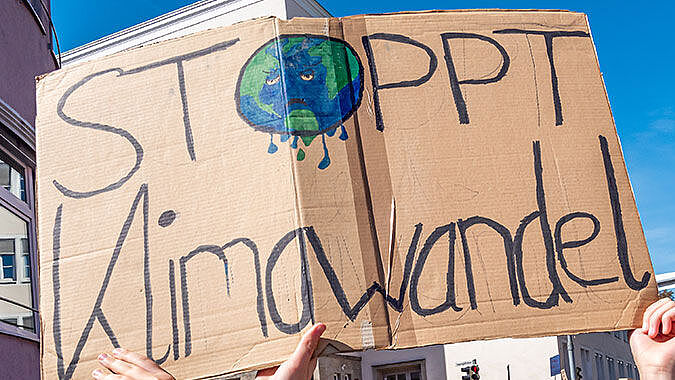 STOPPT
Klimawandel